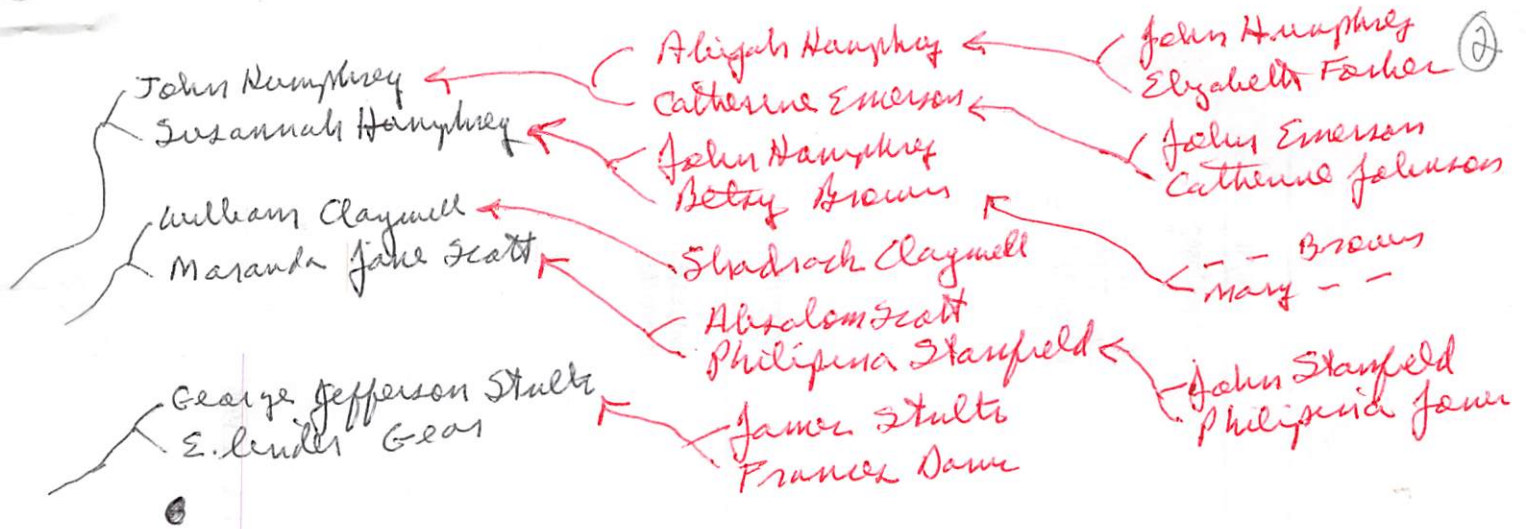 John Humphrey
Susannah Humphrey
William Claywell
Maranda Jane Scott
George Jefferson Stults
E. linder Gear
Abigah Humphrey
Catherine Emerson
John Humphrey
Betsy Brown
Shadrack Claywell
Absalom Scott
Philipena Stanfield
James Stults
Frances
John Humphrey
Elizabeth
2
John Emerson
Catherine Johnson
_ _ Brown
Mary - -
John Stanfield
Philipenia